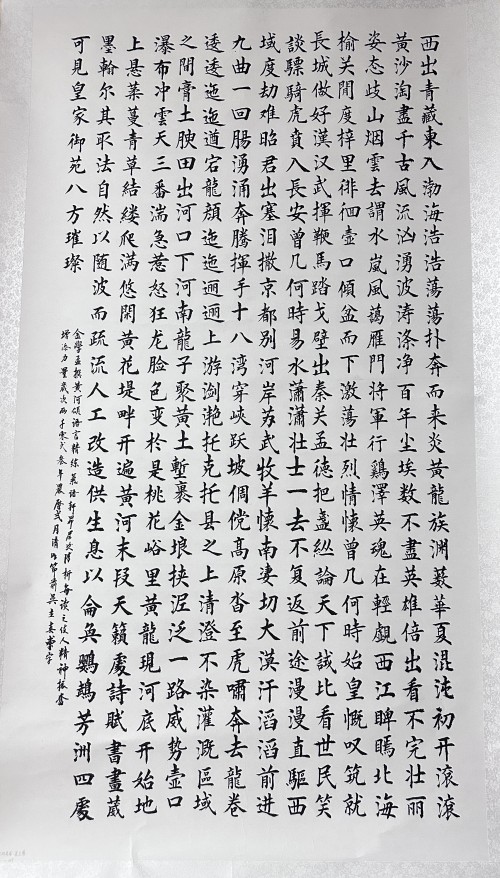 西出青藏東入渤海浩浩蕩蕩扑奔而来炎黄龍族渊薮華夏混沌初开滚滚
黄沙淘盡千古風流汹湧波涛涤净百年尘埃数不盡英雄倍出看不完壮丽
姿态歧山烟雲去謂水嵐風蔼雁門将軍行鷄澤英魂在輕觑西江睥睨北海
榆关閒度梓里徘徊壶口傾盆而下激蕩壮烈情懐曾几何時始皇慨叹筑就
長城做好漢汉武揮鞭馬踏戈壁出秦关孟德把盏纵論天下誠比看世民笑
談驃騎虎賁入長安曾几何時易水瀟瀟壮士一去不复返前途漫漫直驅西
域度劫难昭君出塞泪撒京都别河岸苏武牧羊懐南凄切大漠汗滔滔前进
九曲一回腸湧涌奔騰揮手十八湾穿峡跃坡倜傥高原沓至虎嘯奔去龍卷
逶逶迤迤遒宕龍顔迤迤逦逦上游浏滟托克托县之上清澄不染灌溉區域
之間膏土腴田出河口下河南龍子聚黄土塹裹金埌挟泥泛一路威勢壶口
瀑布冲雲天三番湍急惹怒狂龙脸色變於是桃花峪里黄龍現河底开始地
上悬菜蔓青草结缕爬滿悠閑黄花堤畔开遍黄河末段天籁處詩賦書畫葳
墨翰尔其取法自然以随波而疏流人工改造供生息以侖奂鸚鵡芳洲四處
可見皇家御苑八方璀璨
金學孟撰黄河頌语言精练
增添力量歲次丙子寒弌叁年農曆弍月清